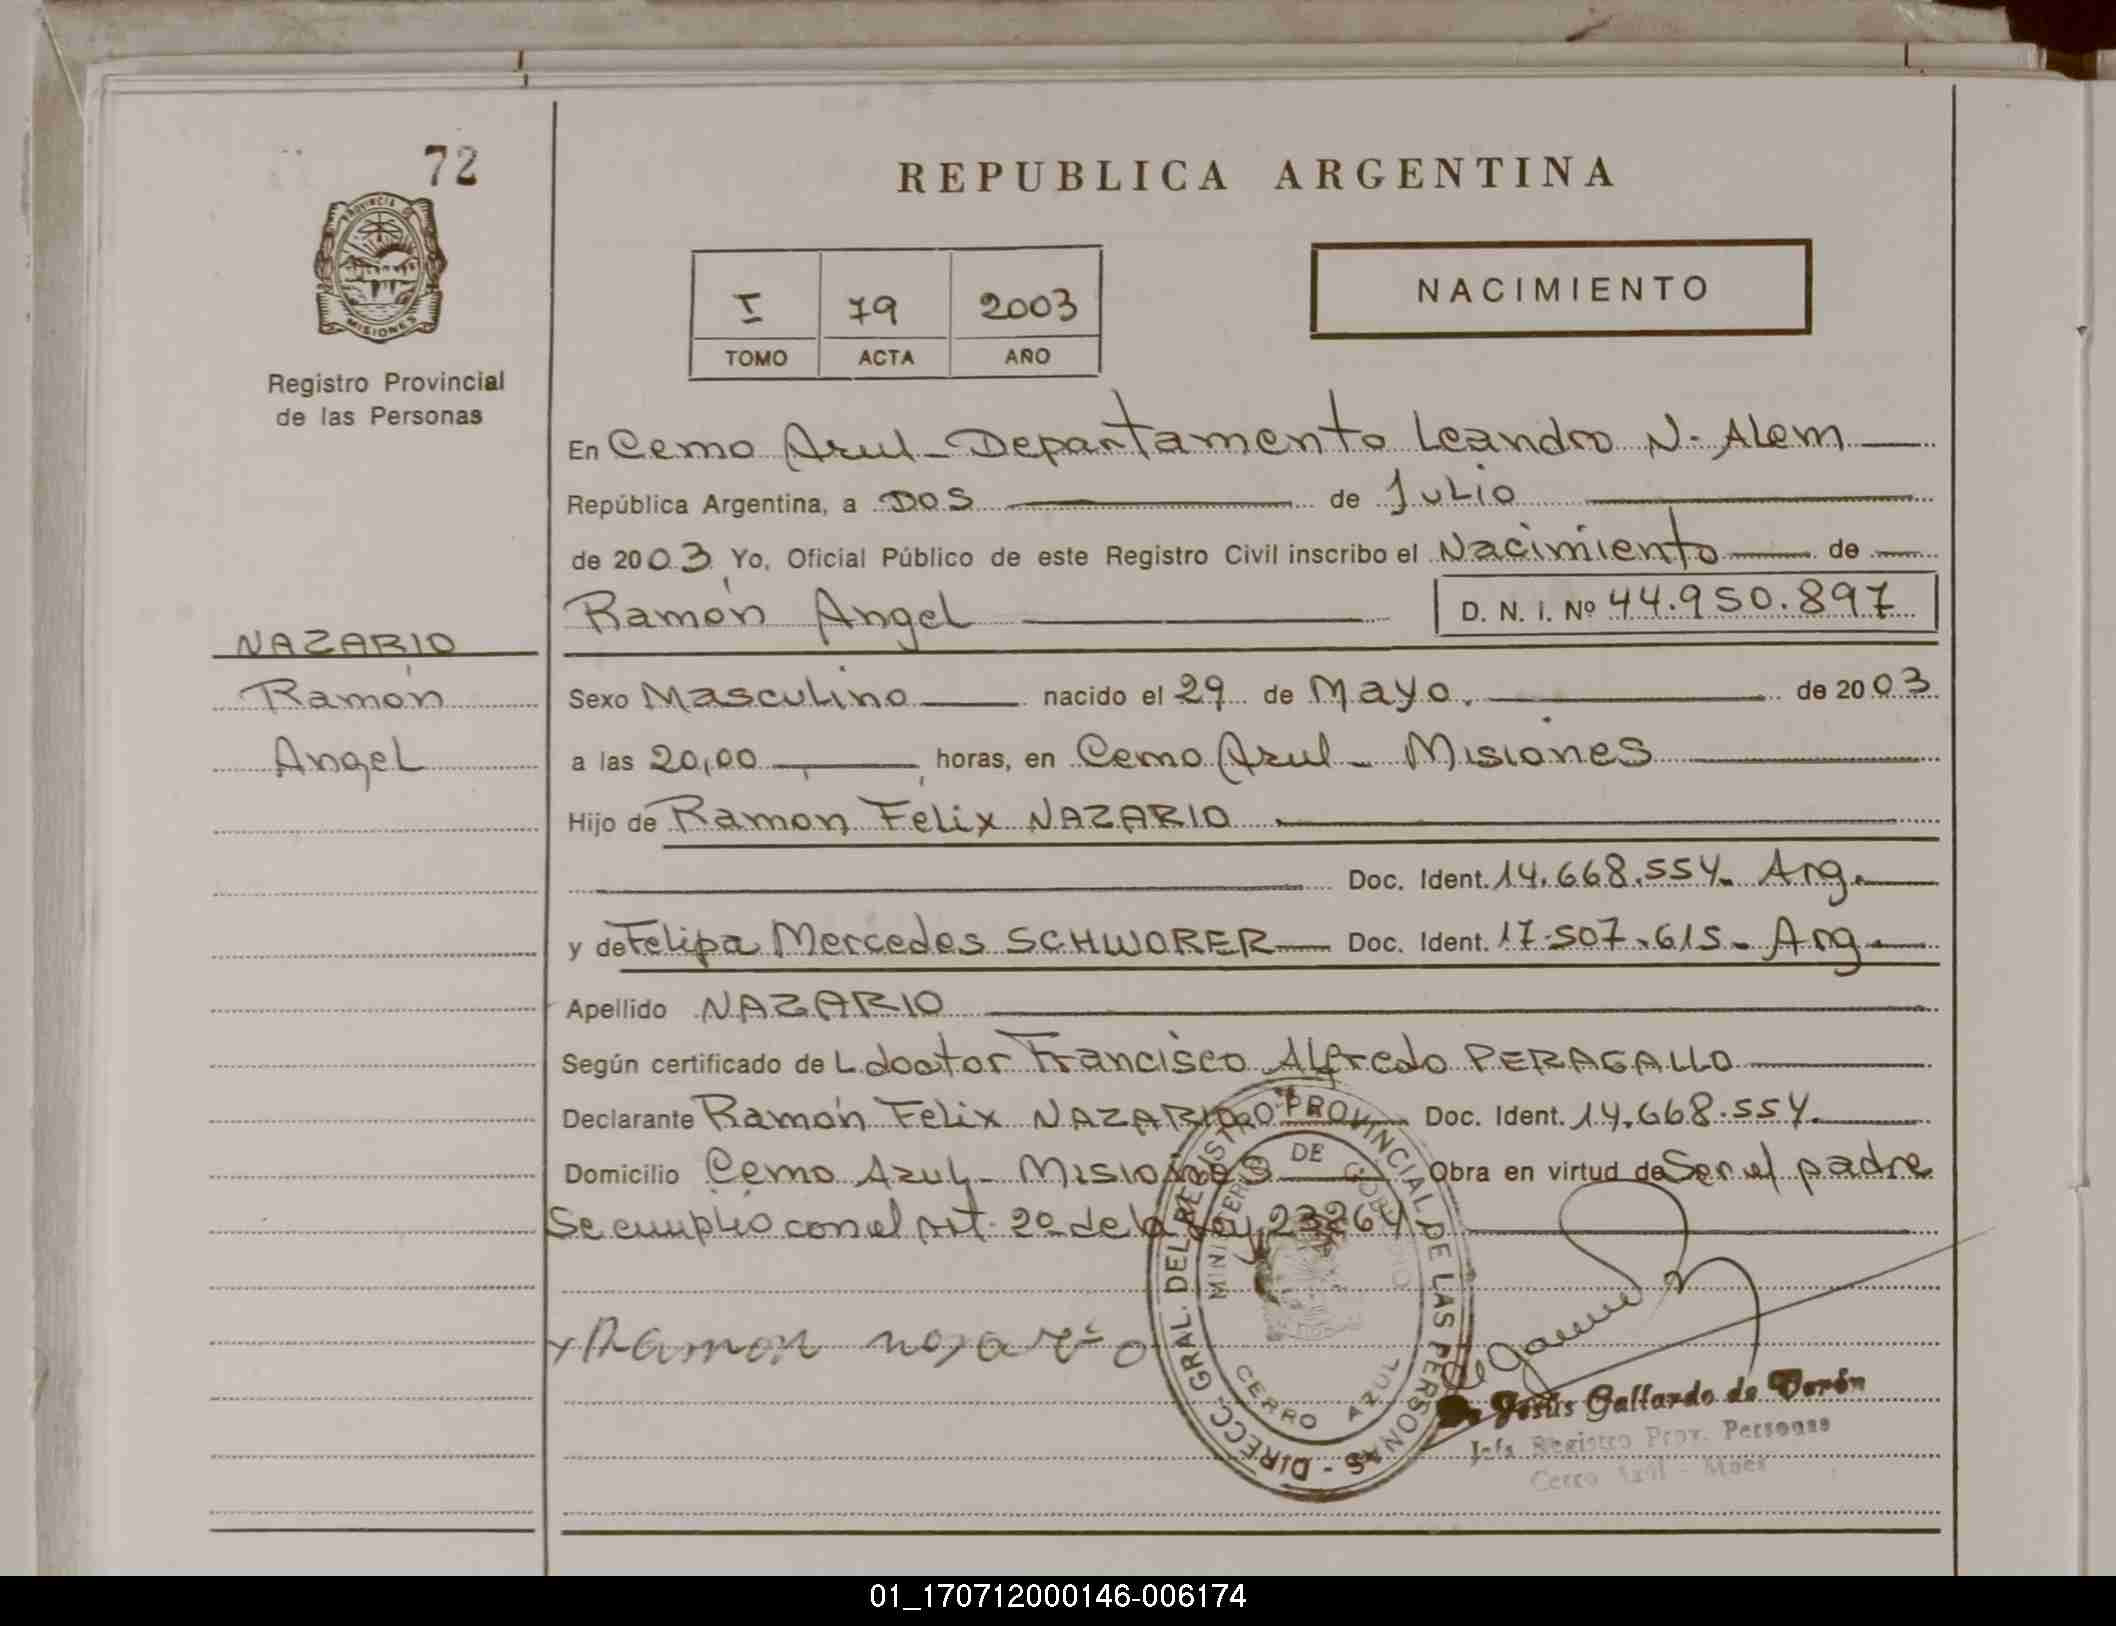 72
PROVINCIA DE
MISIONES
Registro Provincial
de las Personas
REPUBLICA ARGENTINA
I 79 2003
TOMO ACTA AÑO
NACIMIENTO
En Cerro Azul - Departamento Leandro N. Alem
República Argentina, a DOS de Julio
de 2003 Yo, Oficial Público de este Registro Civil inscribo el Nacimiento de
Ramón Angel D. N. I. Nº 44.950.897
NAZARIO
Ramón
Angel
Sexo Masculino nacido el 29 de Mayo de 2003
a las 20,00 horas, en Cerro Azul - Misiones
Hijo de Ramón Félix NAZARIO
Doc. Ident. 14.668.554. Arg.
y de Felipa Mercedes SCHWORER Doc. Ident. 17.507.615. Arg.
Apellido NAZARIO
Según certificado de L doctor Francisco Alfredo PERAGALLO
Declarante Ramón Félix NAZARIO Doc. Ident. 14.668.554.
Domicilio Cerro Azul - Misiones Obra en virtud de Ser el padre
Se cumplio con el Art. 2º de la Ley 23264
x Ramon nazario
DIRECC. GRAL. DEL REGISTRO PROVINCIAL DE LAS PERSONAS -
MINISTERIO DE GOBIERNO
CERRO AZUL
de Jesús Gallardo de Verón
Jefa Registro Prov. Personas
Cerro Azul - Mnes
01_170712000146-006174